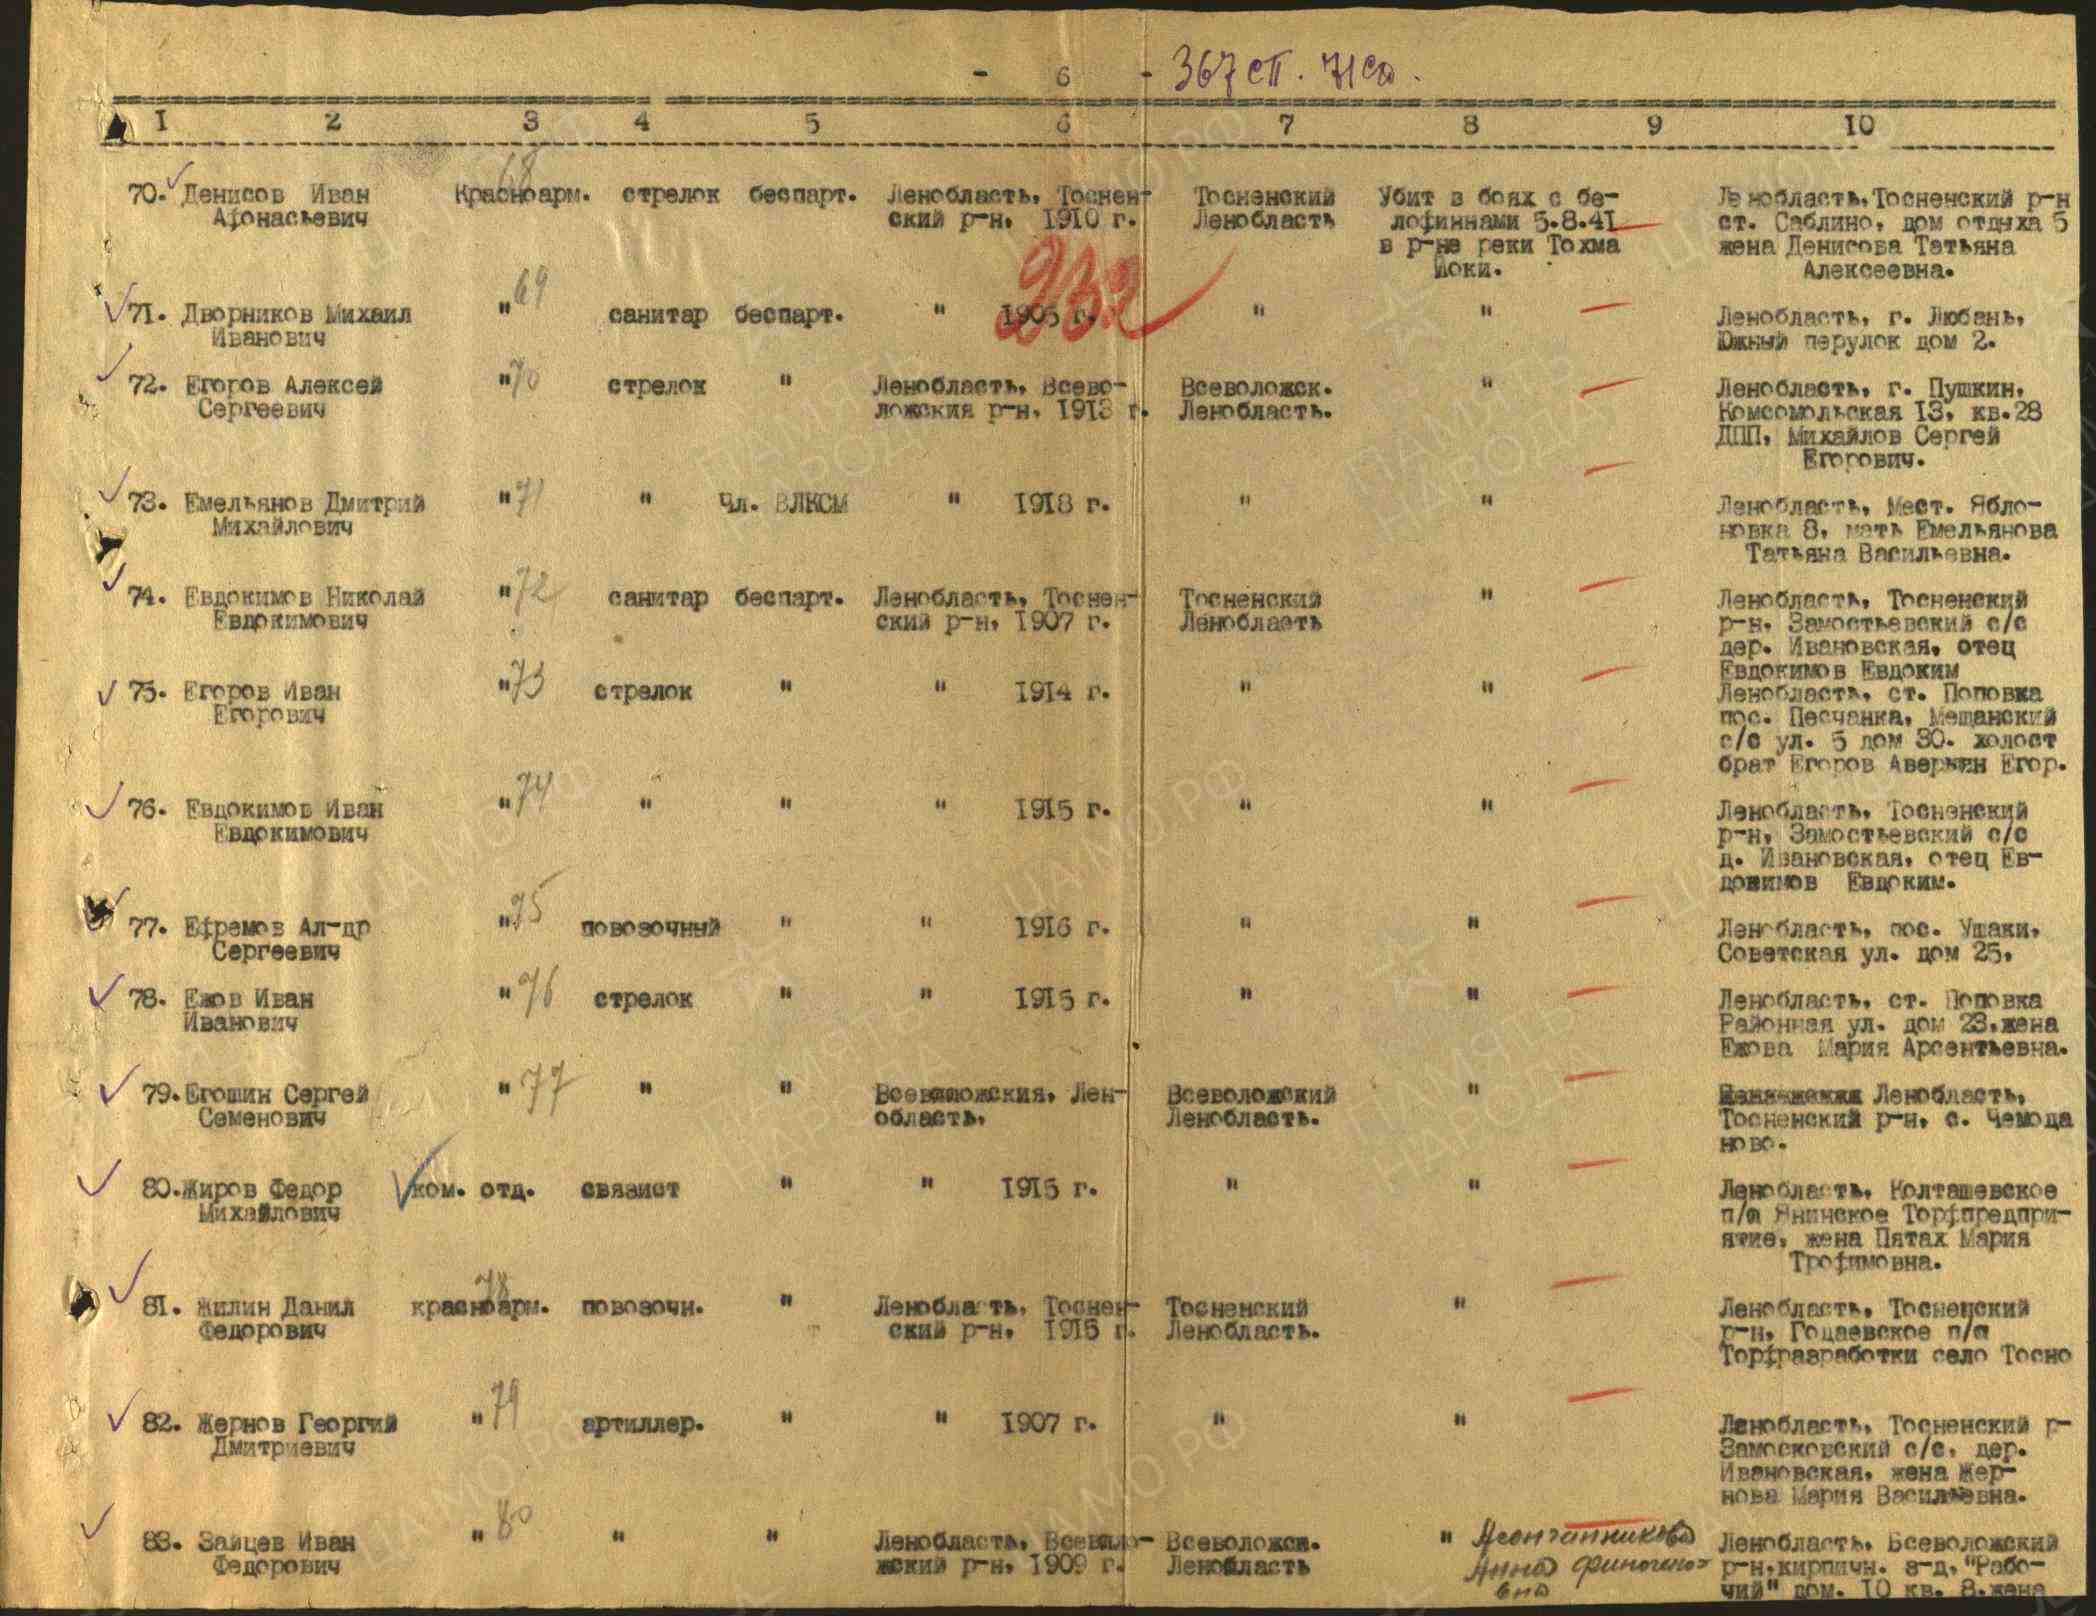 - 6 - 367 сп. 71 сд.
I 2 3 4 5 6 7 8 9 10
68
70. Денисов Иван Красноарм. стрелок беспарт. Ленобласть, Тоснен- Тосненский Убит в боях с бе- Ленобласть, Тосненский р-н
Афонасьевич ский р-н, 1910 г. Ленобласть лофиннами 5.8.41 ст. Саблино, дом отдыха 5
в р-не реки Тохма жена Денисова Татьяна
Йоки. Алексеевна.
232
71. Дворников Михаил " 69 санитар беспарт. " 1905 г. " " Ленобласть, г. Любань,
Иванович Южный перулок дом 2.
72. Егоров Алексей " 70 стрелок " Ленобласть, Всево- Всеволожск. " Ленобласть, г. Пушкин,
Сергеевич ложския р-н, 1913 г. Ленобласть. Комсомольская 13, кв.28
ДПП, Михайлов Сергей
Егорович.
73. Емельянов Дмитрий " 71 " Чл. ВЛКСМ " 1918 г. " " Ленобласть, Мест. Ябло-
Михайлович новка 8, мать Емельянова
Татьяна Васильевна.
74. Евдокимов Николай " 72 санитар беспарт. Ленобласть, Тоснен- Тосненский " Ленобласть, Тосненский
Евдокимович ский р-н, 1907 г. Ленобласть р-н, Замостьевский с/с
дер. Ивановская, отец
Евдокимов Евдоким
75. Егоров Иван " 73 стрелок " " 1914 г. " " Ленобласть, ст. Поповка
Егорович пос. Песчанка, Мещанский
с/с ул. 5 дом 30. холост
брат Егоров Аверьян Егор.
76. Евдокимов Иван " 74 " " " 1915 г. " " Ленобласть, Тосненский
Евдокимович р-н, Замостьевский с/с
д. Ивановская, отец Ев-
докимов Евдоким.
77. Ефремов Ал-др " 75 повозочный " " 1916 г. " " Ленобласть, пос. Ушаки,
Сергеевич Советская ул. дом 25,
78. Ежов Иван " 76 стрелок " " 1915 г. " " Ленобласть, ст. Поповка
Иванович Районная ул. дом 23.жена
Ежова Мария Арсентьевна.
79. Егошин Сергей " 77 " " Всеволожския, Лен- Всеволожский " Ленобласть,
Семенович область, Ленобласть. Тосненский р-н, с. Чемода
ново.
80. Жиров Федор ком. отд. связист " " 1915 г. " " Ленобласть, Колташевское
Михайлович п/о Янинское Торфпредпри-
ятие, жена Пятах Мария
Трофимовна.
78
81. Жилин Данил красноарм. повозочн. " Ленобласть, Тоснен- Тосненский " Ленобласть, Тосненский
Федорович ский р-н, 1915 г. Ленобласть. р-н, Годаевское п/о
Торфразработки село Тосно
82. Жернов Георгий " 79 артиллер. " " 1907 г. " " Ленобласть, Тосненский р-
Дмитриевич Замосковский с/с, дер.
Ивановская, жена Жер-
нова Мария Васильевна.
83. Зайцев Иван " 80 " " Ленобласть, Всеволо- Всеволожск. " Ленобласть, Всеволожский
Федорович жский р-н, 1909 г. Ленобласть Анна р-н,кирпичн. з-д, "Рабо-
вна чий" дом. 10 кв. 8.жена
ЦАМО.РФ
ПАМЯТЬ
НАРОДА